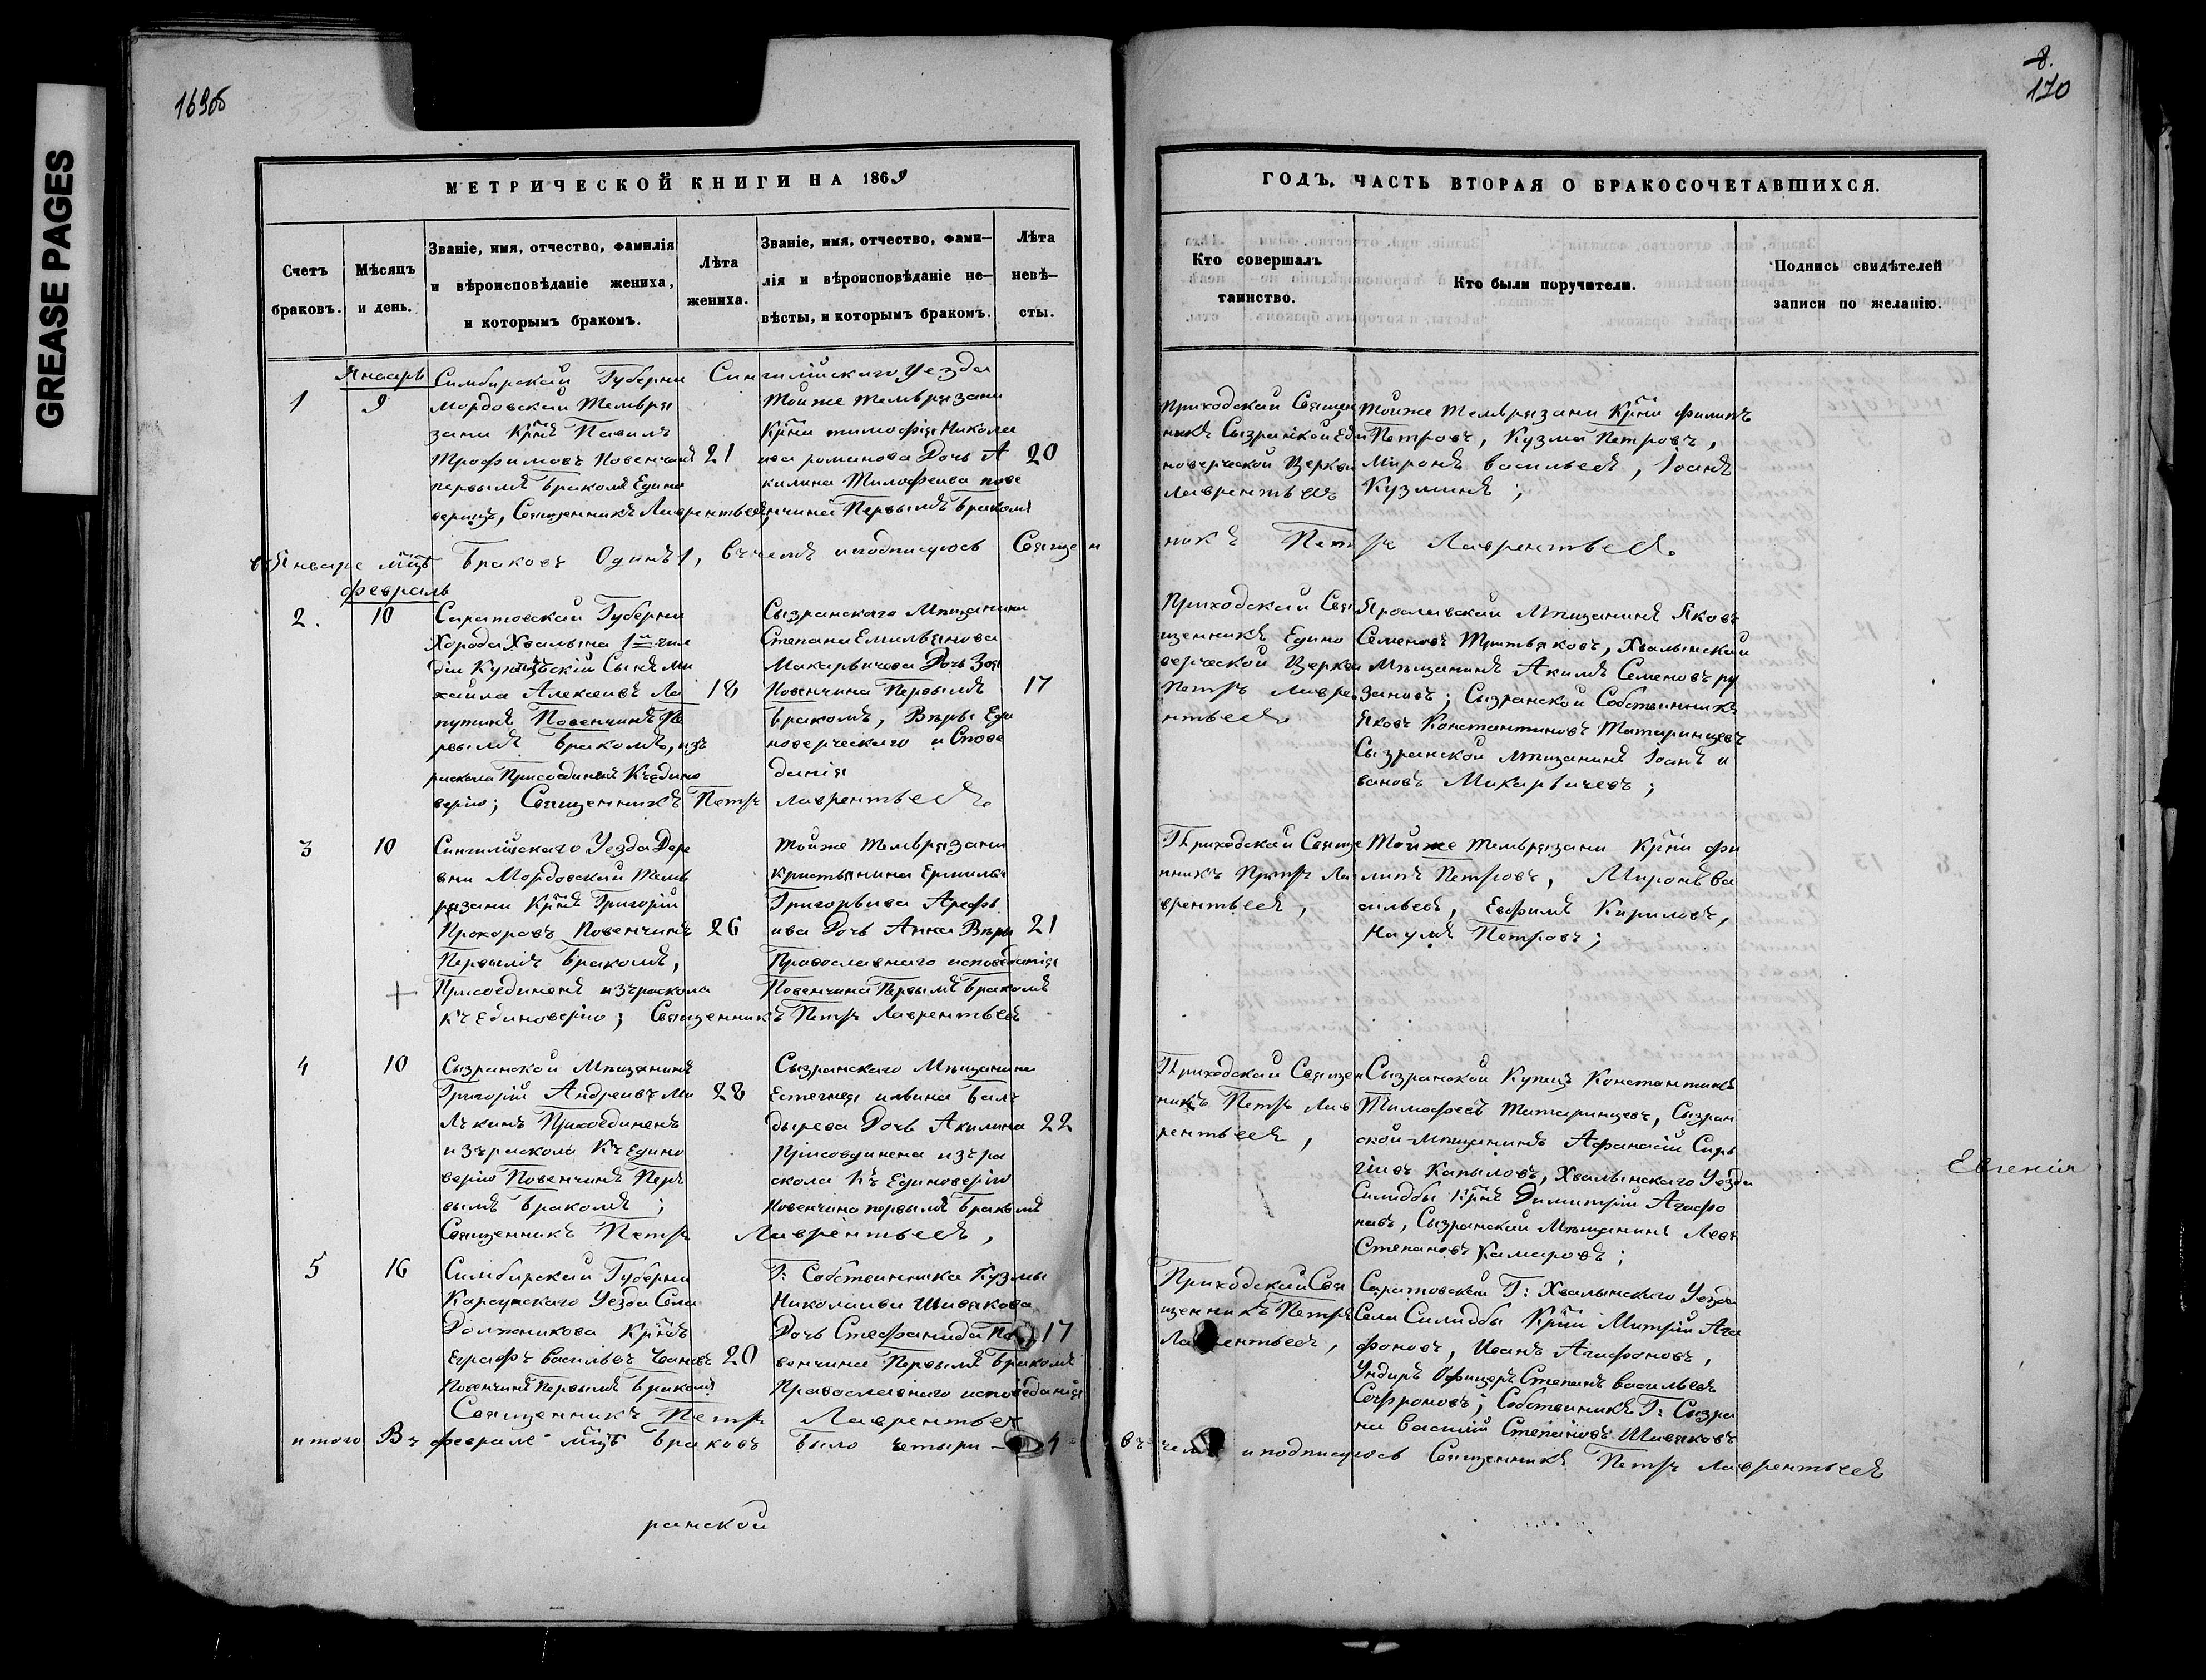 GREASE PAGES
169об
8.
170
МЕТРИЧЕСКОЙ КНИГИ НА 1869
Счетъ
браковъ.
Мѣсяцъ
и день.
Званіе, имя, отчество, фамилія
и вѣроисповѣданіе жениха,
и которымъ бракомъ.
Лѣта
жениха.
Званіе, имя, отчество, фами-
лія и вѣроисповѣданіе не-
вѣсты, и которымъ бракомъ.
Лѣта
невѣ-
сты.
ГОДЪ, ЧАСТЬ ВТОРАЯ О БРАКОСОЧЕТАВШИХСЯ.
Кто совершалъ
таинство.
Кто были поручители.
Подпись свидѣтелей
записи по желанію.
Январь
1
9
Симбирской Губерни Сингилийскаго Уезда
Мордовскай Темьвря
зани Крнъ Павилъ
Трофимовъ Повенчанъ
первымъ Бракомъ Едино
верицъ, Священникъ Лаврентьевъ,
21
Тойже темьврязани
Крни тимофiя Никола
ива романова Дочь А
килина Тимофеива пове
нчина Первымъ браком
20
Приходской Священ
никъ Сызранской Еди
новерческой Церкви
Лаврентьевъ
Тойже темьврязани Крни филипъ
Петровъ, Кузма Петровъ,
Миронъ васильевъ, Iоанъ
Кузминъ;
въ Январе мцъ Браковъ Одинъ 1, въ чемъ и подписуюсь Священ
никъ Петръ Лаврентьевъ
февраль
2.
10
Саратовскай Губерни
Хорода Хвалына 1й гил
дiи Купецъскiй Сынъ Ми
хаила Алексеивъ Ла
путинъ Повенчинъ Пе
рвымъ бракомъ, изъ
раскола Присоединенъ Къедино
верiю; Священникъ Петръ Лаврентьевъ
18
Сызранскаго Мѣщанина
Степана Емильянова
Макарьичева Дочь Зоя
Повенчина Первымъ
Бракомъ, Веры Еди
новерческаго и Спове
данiя
17
Приходской Свя
щенникъ Едино
верческой Церкви
Петръ Лавре
нтьевъ
Ярославской Мѣщанинъ Яковъ
Семеновъ Третьяковъ, Хвалынской
Мѣщанинъ Акимъ Семеновъ ру
зановъ; Сызранской Собственникъ
Яковъ Константиновъ Татаринцевъ
Сызранской мѣщанинъ Iоанъ и
вановъ Макарьичевъ;
3
10
Сингилийскаго Уезда Дере
вни Мордовской Темь
рязани Крнъ Григорiй
Прохоровъ Повенчинъ
Первымъ Бракомъ,
Присоединенъ изъ раскола
къ Единоверiю; Священникъ Петръ Лаврентьевъ
26
Тойже темьврязани
кристьянина Ермилы
Григорьива Арефь
ива Дочь Анна Веры
Православнаго исповеданiя
Повенчина Первымъ бракомъ
21
Приходской Свяще
нникъ Петръ Ла
врентьевъ,
Тойже Темьрязани Крни фи
липъ Петровъ, Миронъ Ва
сильевъ, Евфимъ Кириловъ,
Наумъ Петровъ;
4
10
Сызранской Мѣщанинъ
Григорiй Андреивъ Ма
лькинъ Присоединенъ
изъ раскола Къ Едино
верiю Повенчинъ Пер
вымъ бракомъ;
Священникъ Петръ Лаврентьевъ,
28
Сызранскаго Мѣщанина
Евстегнея ильина Бал
дырева Дочь Акилина
Присоединена изъ ра
скола Къ Единоверiю
Повенчина первымъ Бракомъ
22
Приходской Священ
никъ Петръ Лав
рентьевъ,
Сызранской Купецъ Константинъ
Тимофеевъ Татаринцевъ, Сызран
ской мѣщанинъ Афанасiй Сирь
гiивъ Капыловъ, Хвалынскаго Уезда
Силидбы Крнъ Димитрiй Агафо
навъ, Сызранскай Мѣщанинъ Левъ
Степановъ Камаровъ;
Евгенiя
5
16
Симбирскай Губерни
Карсунскаго Уезда Села
Должникова Крнъ
Еграфъ Васильевъ Чановъ
Повенчинъ Первымъ Бракомъ
Священникъ Петръ Лаврентьевъ
20
Г: Собственника Кузмы
Николаива Шивякова
Дочь Стефанида По
венчина Первымъ Бракомъ
Православнаго исповеданiя
17
Приходскай Свя
щенникъ Петръ
Лаврентьевъ,
Саратовскай Г: Хвалынскаго Уезда
Села Силидбы Крни Митрiй Ага
фоновъ, Иванъ Агафоновъ,
Ундиръ Офицеръ Степанъ васильевъ
Софроновъ; Собственникъ Г: Сызра
ни Василiй Степановъ Шивяковъ
итого Въ феврале мцъ Браковъ было четыри 4 въ чемъ и подписуюсь Священникъ Петръ Лаврентьевъ
ранской